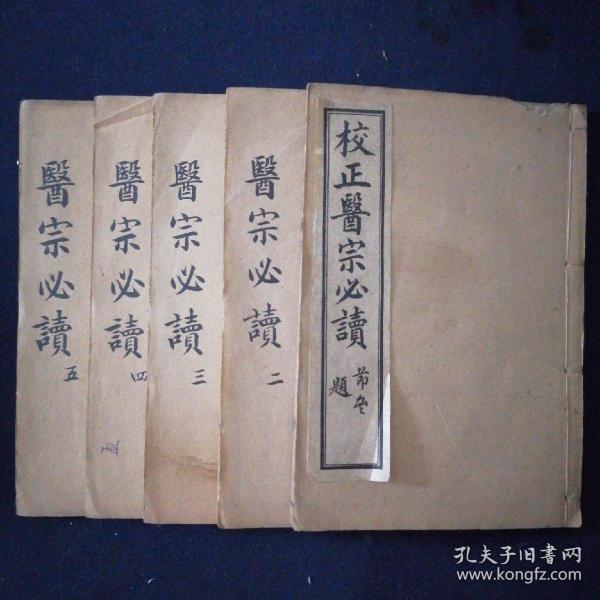 校正醫宗必讀
題
醫宗必讀
二
醫宗必讀
三
醫宗必讀
四
醫宗必讀
五
孔夫子旧书网
www.kongfz.com